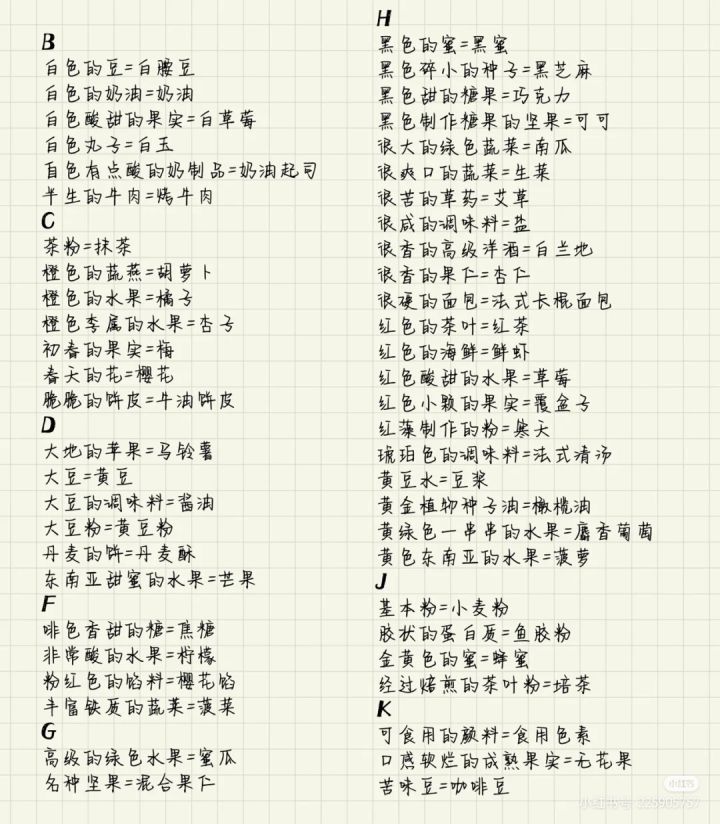 B
白色的豆=白腰豆
白色的奶油=奶油
白色酸甜的果实=白草莓
白色丸子=白玉
白色有点酸的奶制品=奶油起司
半生的牛肉=烤牛肉
C
茶粉=抹茶
橙色的蔬燕=胡萝卜
橙色的水果=橘子
橙色李属的水果=杏子
初春的果实=梅
春天的花=樱花
脆脆的饼皮=牛油饼皮
D
大地的苹果=马铃薯
大豆=黄豆
大豆的调味料=酱油
大豆粉=黄豆粉
丹麦的饼=丹麦酥
东南亚甜蜜的水果=芒果
F
啡色香甜的糖=焦糖
非常酸的水果=柠檬
粉红色的馅料=樱花馅
丰富铁质的蔬菜=菠菜
G
高级的绿色水果=蜜瓜
名种坚果=混合果仁
H
黑色的蜜=黑蜜
黑色碎小的种子=黑芝麻
黑色甜的糖果=巧克力
黑色制作糖果的坚果=可可
很大的绿色蔬菜=南瓜
很爽口的蔬菜=生菜
很苦的草药=艾草
很咸的调味料=盐
很香的高级洋酒=白兰地
很香的果仁=杏仁
很硬的面包=法式长棍面包
红色的茶叶=红茶
红色的海鲜=鲜虾
红色酸甜的水果=草莓
红色小颗的果实=覆盆子
红藻制作的粉=寒天
琥珀色的调味料=法式清汤
黄豆水=豆浆
黄金植物种子油=橄榄油
黄绿色一串串的水果=麝香葡萄
黄色东南亚的水果=菠萝
J
基本粉=小麦粉
胶状的蛋白质=鱼胶粉
金黄色的蜜=蜂蜜
经过焙煎的茶叶粉=培茶
K
可食用的颜料=食用色素
口感软烂的成熟果实=无花果
苦味豆=咖啡豆
小红书
小红书号:225905757